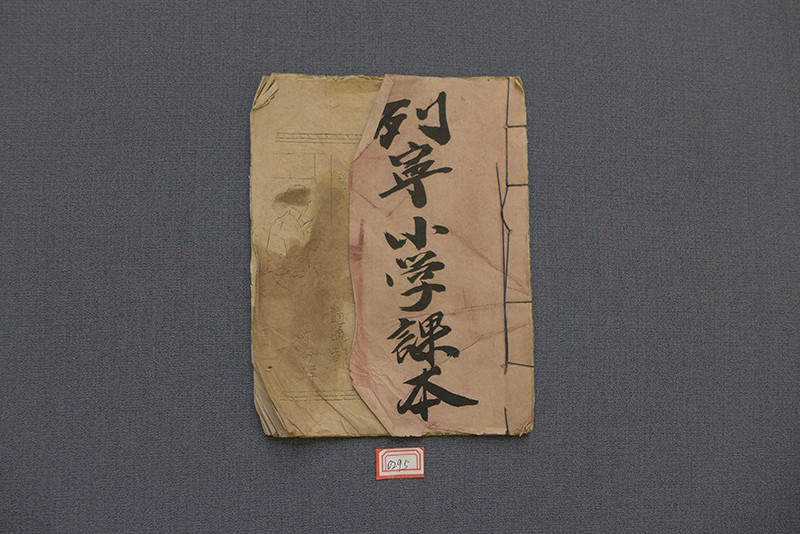 列寧小学課本
0295